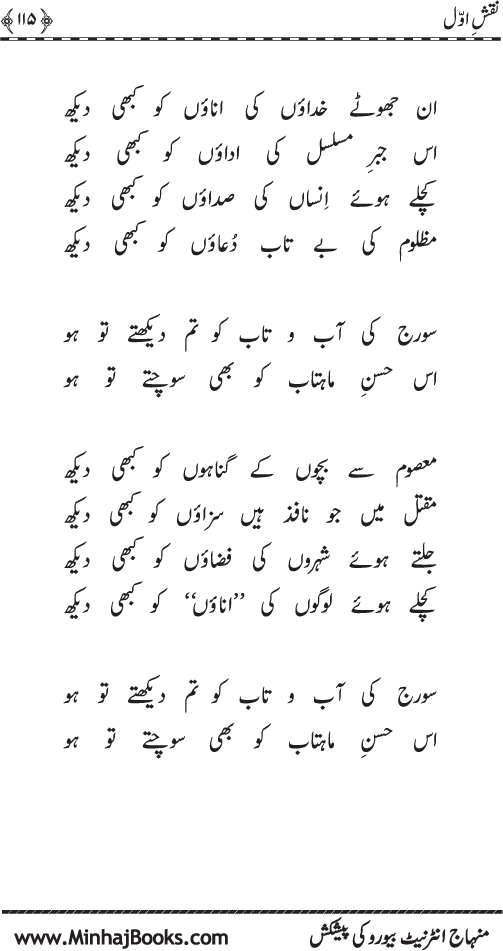 نقشِ اوّل ﴿۱۱۵﴾
ان جھوٹے خداؤں کی اناؤں کو کبھی دیکھ
اس جبرِ مسلسل کی اداؤں کو کبھی دیکھ
کچلے ہوئے اِنساں کی صداؤں کو کبھی دیکھ
مظلوم کی بے تاب دُعاؤں کو کبھی دیکھ
سورج کی آب و تاب کو تم دیکھتے تو ہو
اس حسنِ ماہتاب کو بھی سوچتے تو ہو
معصوم سے بچوں کے گناہوں کو کبھی دیکھ
مقتل میں جو نافذ ہیں سزاؤں کو کبھی دیکھ
جلتے ہوئے شہروں کی فضاؤں کو کبھی دیکھ
کچلے ہوئے لوگوں کی ’’اناؤں‘‘ کو کبھی دیکھ
سورج کی آب و تاب کو تم دیکھتے تو ہو
اس حسنِ ماہتاب کو بھی سوچتے تو ہو
منہاج انٹرنیٹ بیورو کی پیشکش www.MinhajBooks.com